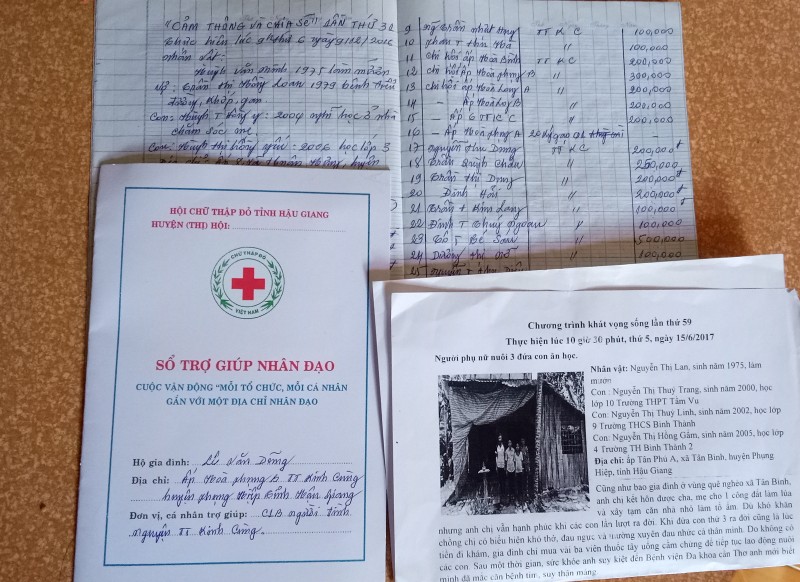 "CẢM THÔNG VÀ CHIA SẺ" LẦN THỨ 32
nhân vật:
Huỳnh văn minh 1975 làm mướn
Vợ: Trần thị Hồng Loan 1979 bệnh
khớp, gan
Con: Huỳnh T Hồng y: 2004 nghỉ học ở nhà
chăm sóc mẹ.
Con: Huỳnh thị hồng yến: 2006 học lớp 3
9 Trần nhật TT K C 100,000
10 Phan T thu 〃 100,000
11 chi hội ấp Hòa Bình TT K C 200,000
12 chi hội ấp Hoà phụng B 〃 300,000
13 chi hội ấp Hoà Long A 〃 200,000
14 – Ấp Hoà Long B 〃 200,000
15 – Ấp 6 TT K C 〃 200,000
16 – Ấp Hoà phụng A
17 Nguyễn Hữu Dung TT K C 200,000đ
18 Trần Quỳnh Châu 〃 250,000
19 Trần Thị Dung 〃 200,000đ
20 〃 200,000đ
21 Trần T Kim Lang 〃 100,000
22 Đinh T Thuý 〃 100,000
23 T Bé 〃 500,000
24 Dương thị 〃 100,000
25 Nguyễn T
HỘI CHỮ THẬP ĐỎ TỈNH HẬU GIANG
HUYỆN (THỊ) HỘI:
CHỮ THẬP ĐỎ
VIỆT NAM
SỔ TRỢ GIÚP NHÂN ĐẠO
CUỘC VẬN ĐỘNG "MỖI TỔ CHỨC, MỖI CÁ NHÂN
GẮN VỚI MỘT ĐỊA CHỈ NHÂN ĐẠO
Hộ gia đình: Lê Văn Dũng
Địa chỉ: Ấp Hoà phụng B TT Kinh Cùng
huyện phụng Hiệp Tỉnh Hậu Giang
Đơn vị, cá nhân trợ giúp: CLB người tình
nguyện TT Kinh Cùng.
Chương trình khát vọng sống lần thứ 59
Thực hiện lúc 10 giờ 30 phút, thứ 5, ngày 15/6/2017
Người phụ nữ nuôi 3 đứa con ăn học.
Nhân vật: Nguyễn Thị Lan, sinh năm 1975, làm
mướn
Con : Nguyễn Thị Thuỳ Trang, sinh năm 2000, học
lớp 10 Trường THPT Tầm Vu
Con: Nguyễn Thị Thuỳ Linh, sinh năm 2002, học lớp
9 Trường THCS Bình Thành
Con: Nguyễn Thị Hồng Gấm, sinh năm 2005, học lớp
4 Trường TH Bình Thành 2
Địa chỉ: ấp Tân Phú A, xã Tân Bình, huyện Phụng
Hiệp, tỉnh Hậu Giang
Cũng như bao gia đình ở vùng quê nghèo xã Tân Bình,
anh chị kết hôn được cha, mẹ cho 1 công đất làm lúa
và xây tạm căn nhà nhỏ làm tổ ấm. Dù khó khăn
nhưng anh chị vẫn hạnh phúc khi các con lần lượt ra đời. Khi đứa con thứ 3 ra đời cũng là lúc
chồng chị có biểu hiện khó thở, đau ngực và thường xuyên đau nhức cả thân mình. Do không có
tiền đi khám, gia đình chỉ mua vài ba viên thuốc tây uống cầm chừng để tiếp tục lao động nuôi
các con. Sau một thời gian, sức khỏe anh suy kiệt đến Bệnh viện Đa khoa Cần Thơ anh mới biết
mình đã mắc căn bệnh tim, suy thận mạng